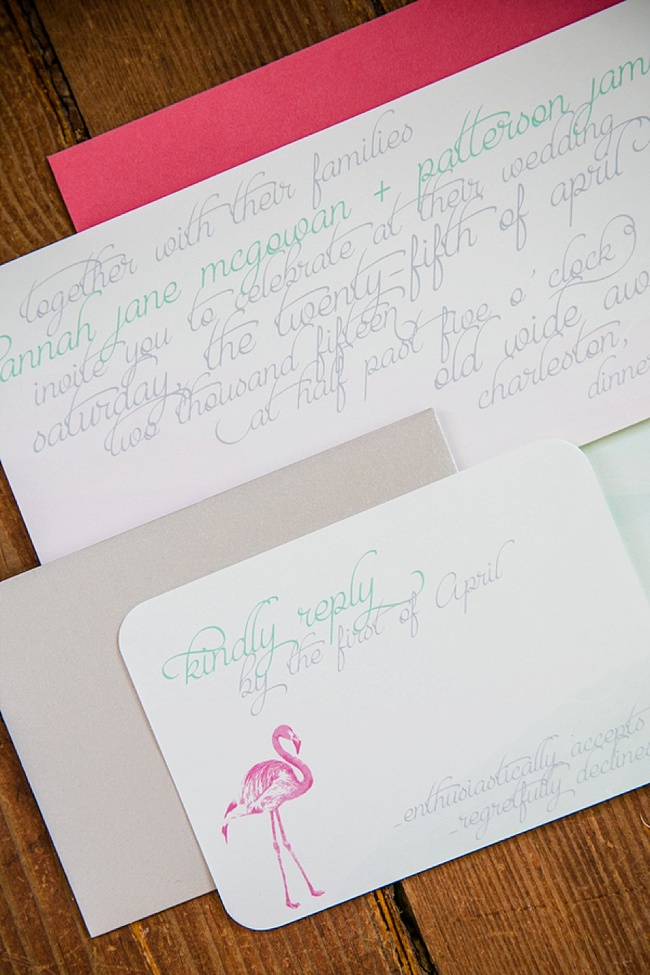 together with their families
hannah jane mcgowan + patterson jam
invite you to celebrate at their wedding
saturday, the twenty-fifth of april
two thousand fifteen
at half past five o'clock
old wide aw
charleston,
dinner
kindly reply
by the first of April
_enthusiastically accepts
_regretfully declines